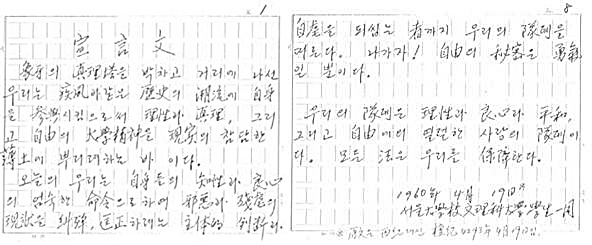 1
宣言文
象牙의 眞理塔을 박차고 거리에 나선
우리는 疾風과 같은 歷史의 潮流에 自身
을 參與시킴으로써 理性과 眞理, 그리
고 自由의 大學精神을 現實의 참담한
薄土에 뿌리려 하는 바이다.
오늘의 우리는 自身들의 知性과 良心
의 엄숙한 命令으로 하여 邪惡과 殘虐의
現狀을 糾彈, 匡正하려는 主體的
8
自虐을 되씹는 者까지 우리의 隊列을
따른다. 나가자! 自由의 秘密은 勇氣
일 뿐이다.
우리의 隊列은 理性과 良心과 平和,
그리고 自由에의 열렬한 사랑의 隊列이
다. 모든 法은 우리를 保障한다.
1960年 4月 19日
서울大學校文理科大學 學生一同
4293年 4月 19日